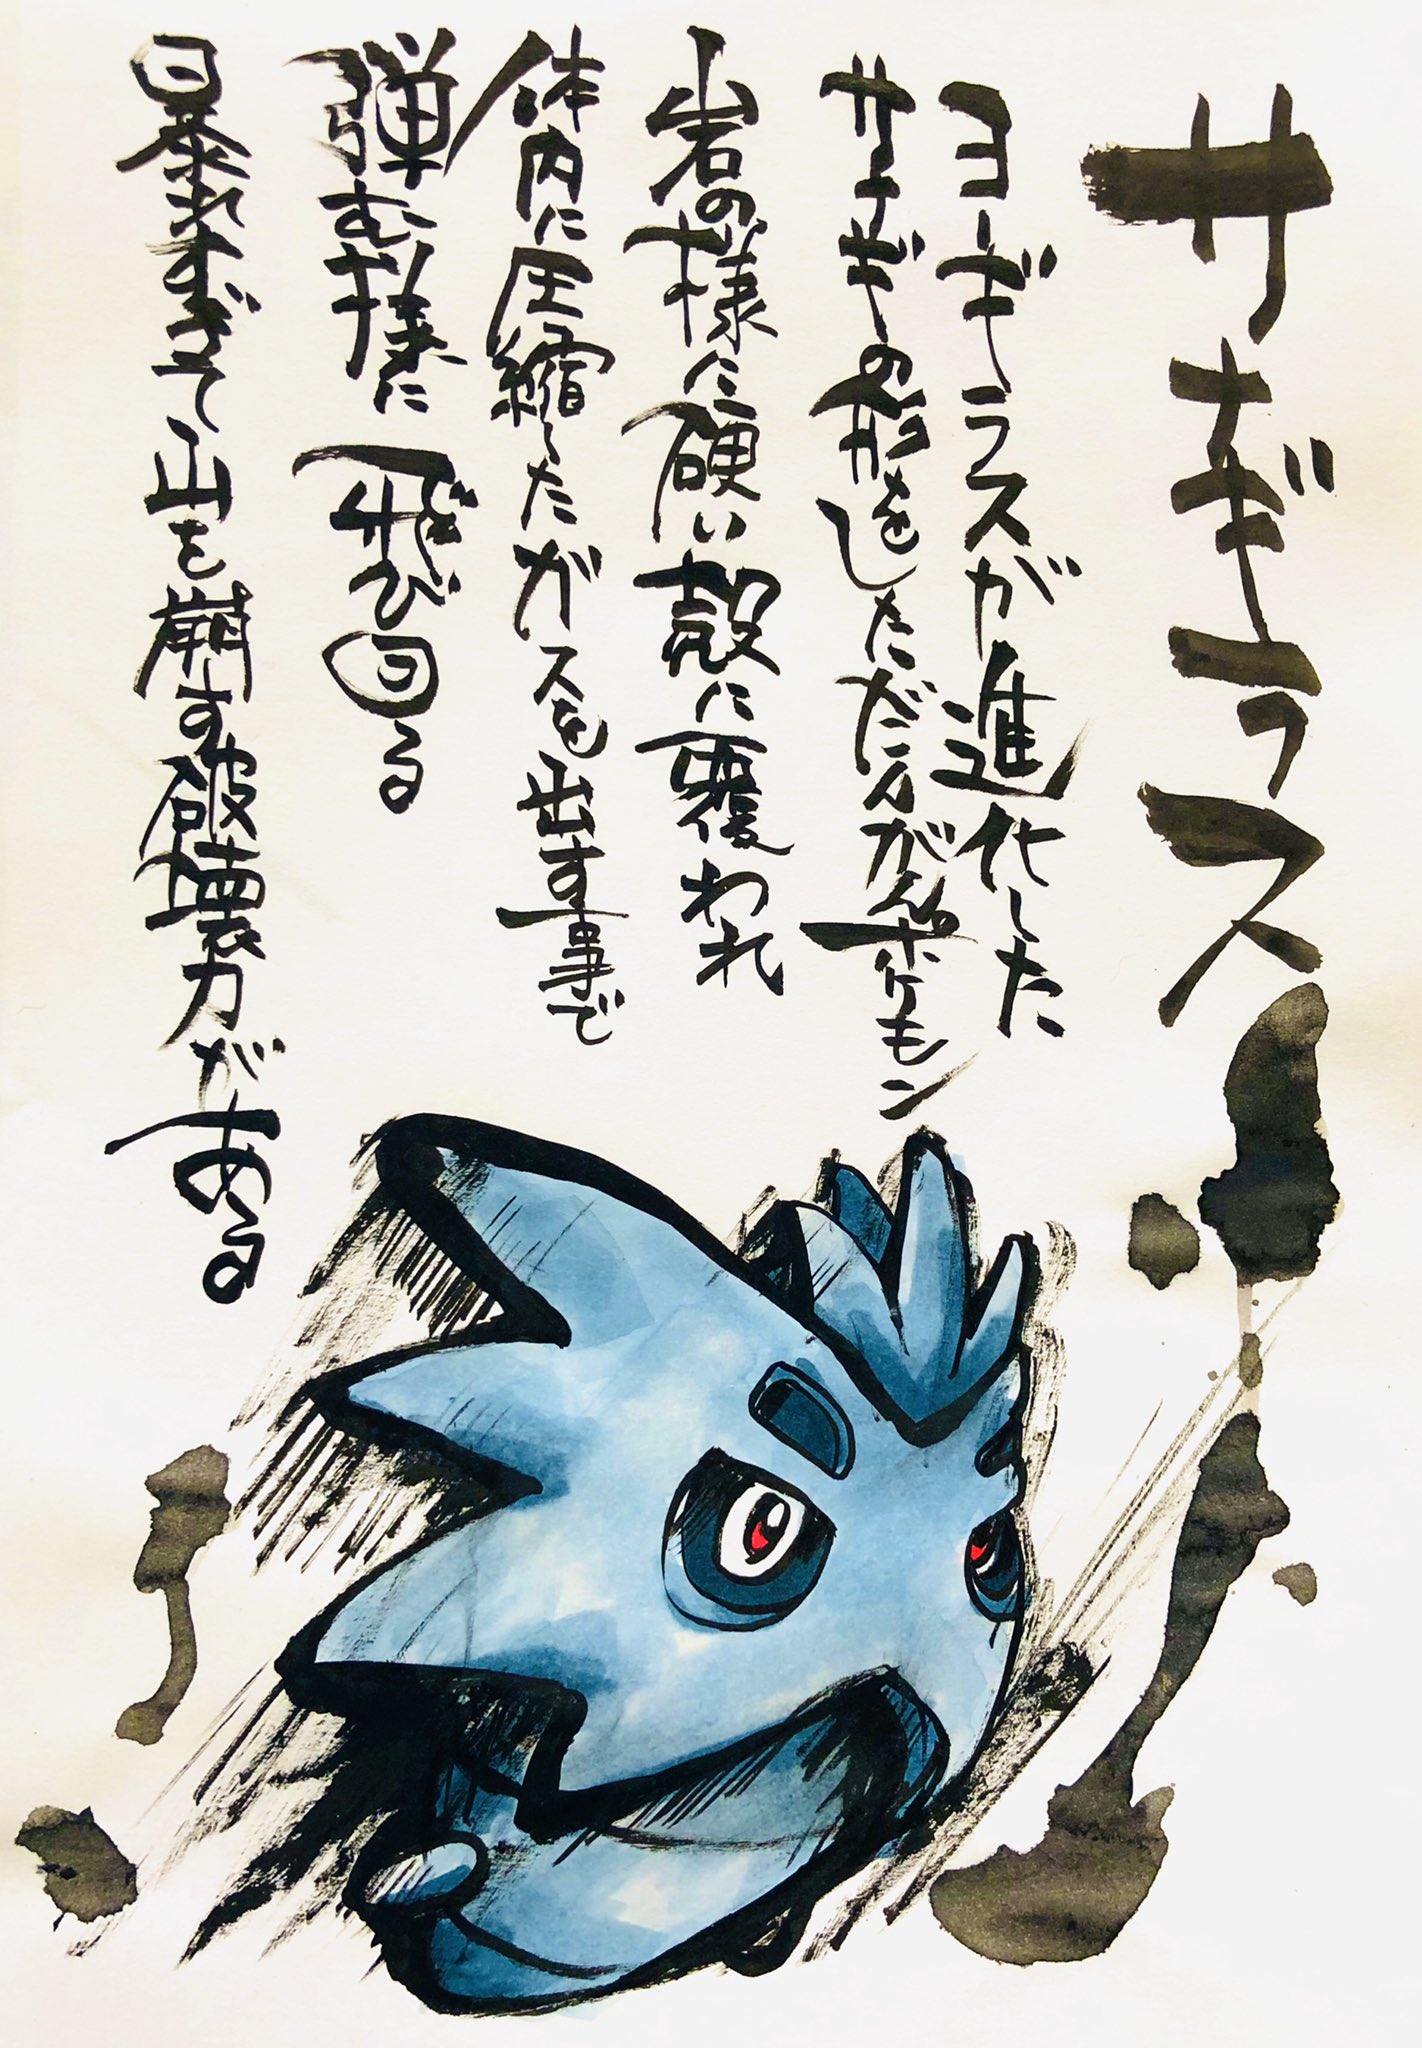 サギラス
ヨーギラスが進化した
サナギの形をしただんがんポケモン
岩の様に硬い殻に覆われ
体内に圧縮したガスを出す事で
弾む様に飛び回る
暴れすぎて山を崩す破壊力がある